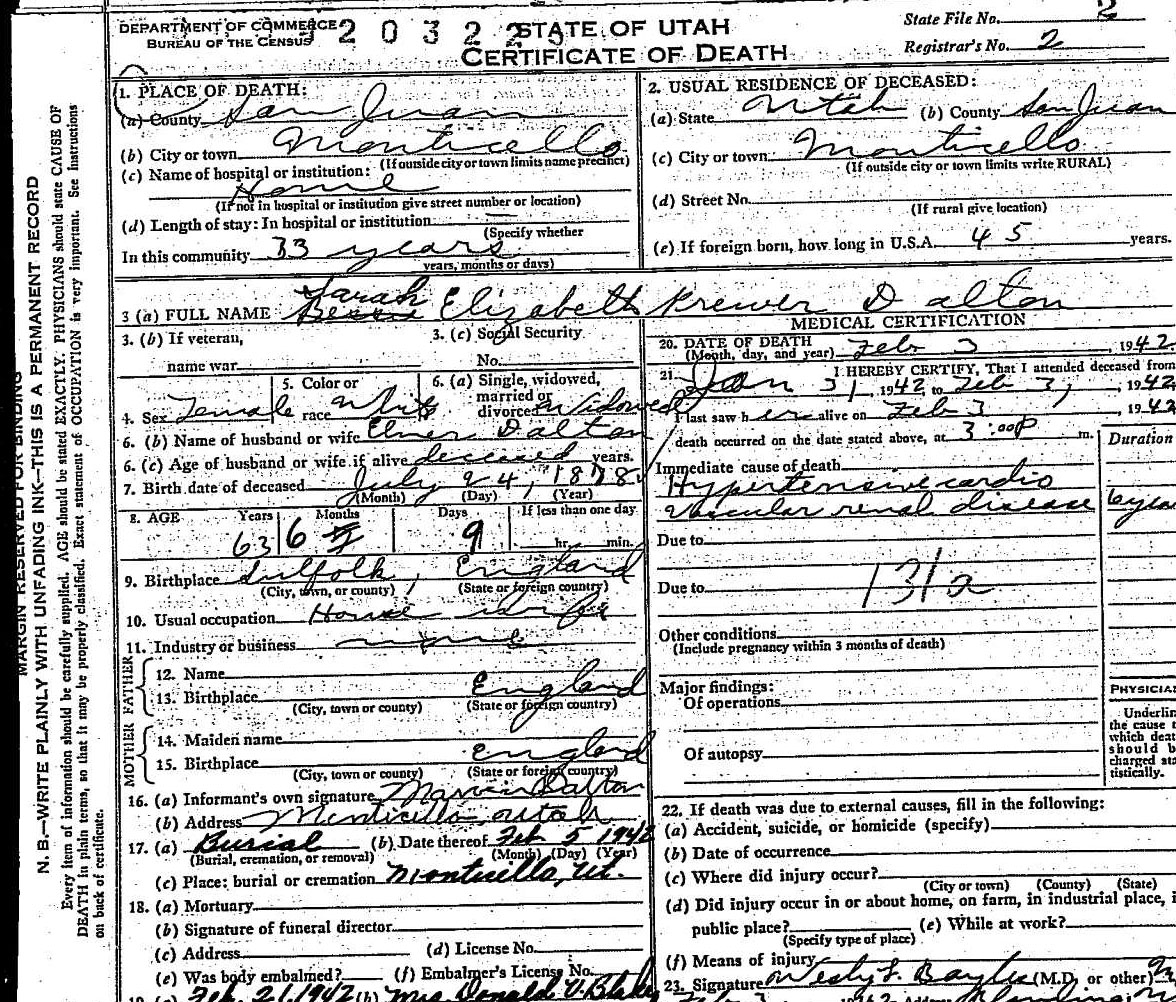 DEPARTMENT OF COMMERCE
BUREAU OF THE CENSUS
2 0 3 2 2
STATE OF UTAH
CERTIFICATE OF DEATH
State File No. 2
Registrar's No. 2
MARGIN RESERVED FOR BINDING
N. B.—WRITE PLAINLY WITH UNFADING INK—THIS IS A PERMANENT RECORD
Every item of information should be carefully supplied. AGE should be stated EXACTLY. PHYSICIANS should state CAUSE OF
DEATH in plain terms, so that it may be properly classified. Exact statement of OCCUPATION is very important. See Instructions
on back of certificate.
1. PLACE OF DEATH:
(a) County San Juan
(b) City or town Monticello
(If outside city or town limits name precinct)
(c) Name of hospital or institution:
Home
(If not in hospital or institution give street number or location)
(d) Length of stay: In hospital or institution
(Specify whether
In this community 33 years
years, months or days)
2. USUAL RESIDENCE OF DECEASED:
(a) State Utah (b) County San Juan
(c) City or town Monticello
(If outside city or town limits write RURAL)
(d) Street No.
(If rural give location)
(e) If foreign born, how long in U.S.A. 45 years.
3 (a) FULL NAME Sarah Elizabeth Krewer Dalton
3. (b) If veteran,
name war
3. (c) Social Security
No.
4. Sex Female
5. Color or
race White
6. (a) Single, widowed,
married or
divorced Widowed
6. (b) Name of husband or wife Elmer Dalton
6. (c) Age of husband or wife if alive deceased years.
7. Birth date of deceased July 24, 1878
(Month) (Day) (Year)
8. AGE Years Months Days If less than one day
63 6 9 hr. min.
9. Birthplace Suffolk, England
(City, town, or county) (State or foreign country)
10. Usual occupation House wife
11. Industry or business
FATHER
12. Name
13. Birthplace England
(City, town or county) (State or foreign country)
MOTHER
14. Maiden name
15. Birthplace England
(City, town or county) (State or foreign country)
16. (a) Informant's own signature Marvin Dalton
(b) Address Monticello Utah
17. (a) Burial (b) Date thereof Feb 5 1942
(Burial, cremation, or removal) (Month) (Day) (Year)
(c) Place: burial or cremation Monticello, Ut.
18. (a) Mortuary
(b) Signature of funeral director
(c) Address (d) License No.
(e) Was body embalmed? (f) Embalmer's License No.
Feb. 21, 1942 (b) Mrs. Donald
MEDICAL CERTIFICATION
20. DATE OF DEATH
(Month, day, and year) Feb 3, 1942.
21. I HEREBY CERTIFY, That I attended deceased from
Jan 31, 1942 to Feb 3, 1942
I last saw her alive on Feb 3, 1942
death occurred on the date stated above, at 3:00P m.
Duration
Immediate cause of death
Hypertensive cardio
Vascular renal disease
Due to
Due to 131a
Other conditions
(Include pregnancy within 3 months of death)
Major findings:
Of operations
Of autopsy
PHYSICIA
Underlin
the cause t
which deat
should b
charged sta
tistically.
22. If death was due to external causes, fill in the following:
(a) Accident, suicide, or homicide (specify)
(b) Date of occurrence
(c) Where did injury occur?
(City or town) (County) (State)
(d) Did injury occur in or about home, on farm, in industrial place, i
public place? (e) While at work?
(Specify type of place)
(f) Means of injury
23. Signature Wesly L. Bayles (M.D. or other)